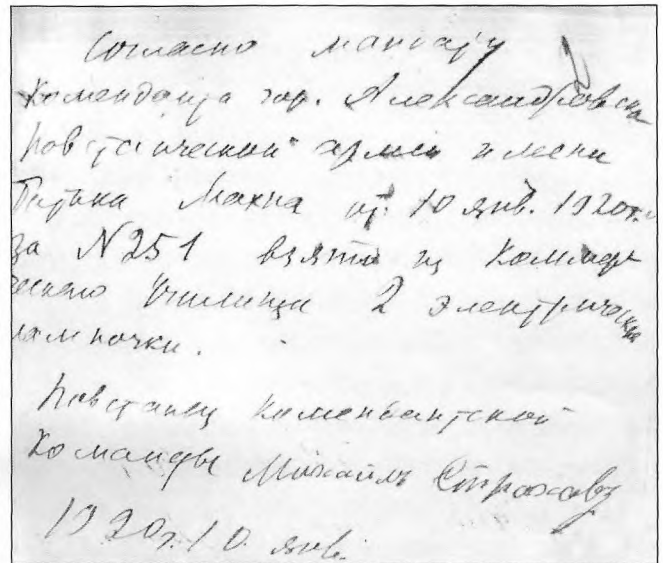 Согласно мандату
Коменданта гор. Александровска
Повстанческой армии имени
Батька Махна от 10 янв. 1920г.
за №251 взято из Коммер
ческаго Училища 2 электрическия
лампочки.
Повстанец Комендантской
Команды Михаилъ Страховъ
1920г. 10 янв.